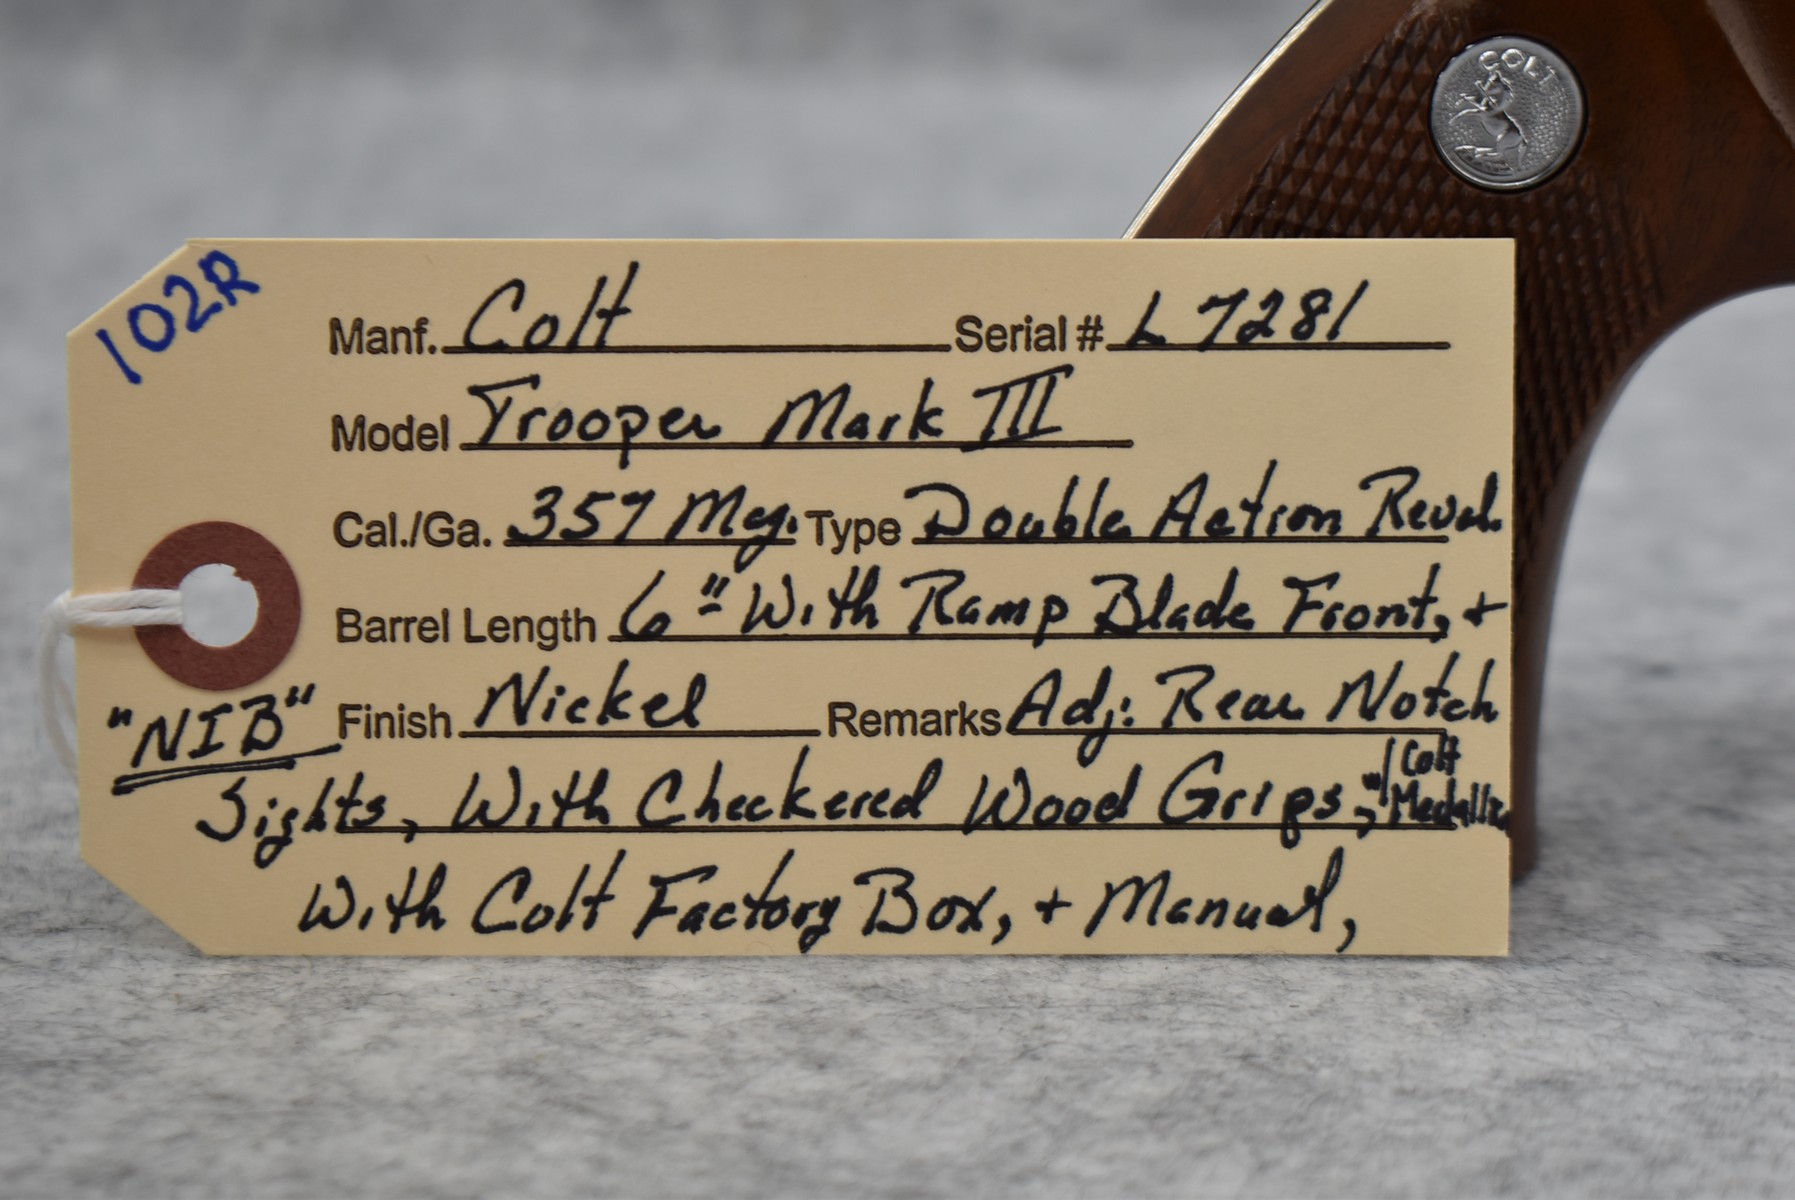 COLT
102R
Manf. Colt Serial # L7281
Model Trooper Mark III
Cal./Ga. 357 Mag. Type Double Action Revol.
Barrel Length 6" With Ramp Blade Front, +
"NIB" Finish Nickel Remarks Adj: Rear Notch
Sights, With Checkered Wood Grips, W/ Colt Medallion
With Colt Factory Box, + Manual,